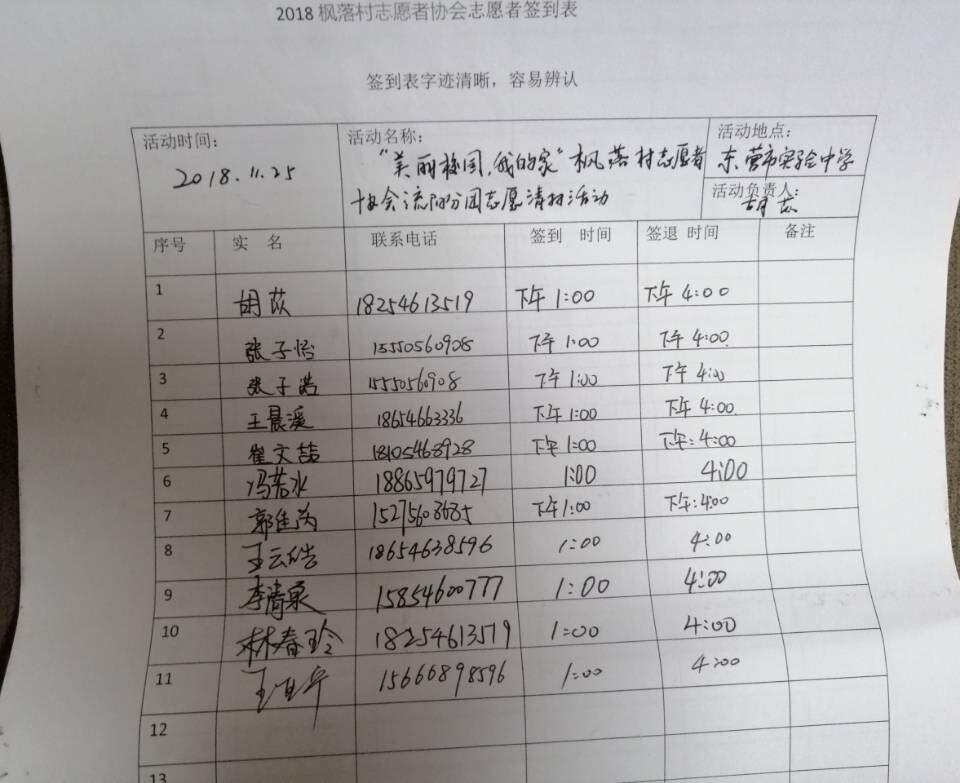 2018枫落村志愿者协会志愿者签到表
签到表字迹清晰，容易辨认
活动时间：
2018.11.25
活动名称：
"美丽校园，我的家"枫落村志愿者
协会 分团志愿清村活动
活动地点：
东营市实验中学
活动负责人：
胡苡
序号 实 名 联系电话 签到 时间 签退 时间 备注
1 胡苡 18254613519 下午 1:00 下午 4:00
2 张子怡 15550560908 下午 1:00 下午 4:00
3 张子诺 15550560908 下午 1:00 下午 4:00
4 王晨溪 18654663336 下午 1:00 下午 4:00
5 崔文喆 18105463928 下午 1:00 下午:4:00
6 冯若水 18865979727 1:00 4:00
7 郭佳 15275603685 下午1:00 下午:4:00
8 王云皓 18654638596 1:00 4:00
9 李清泉 15854600777 1:00 4:00
10 林春玲 18254613519 1:00 4:00
11 王 15666898596 1:00 4:00
12
13